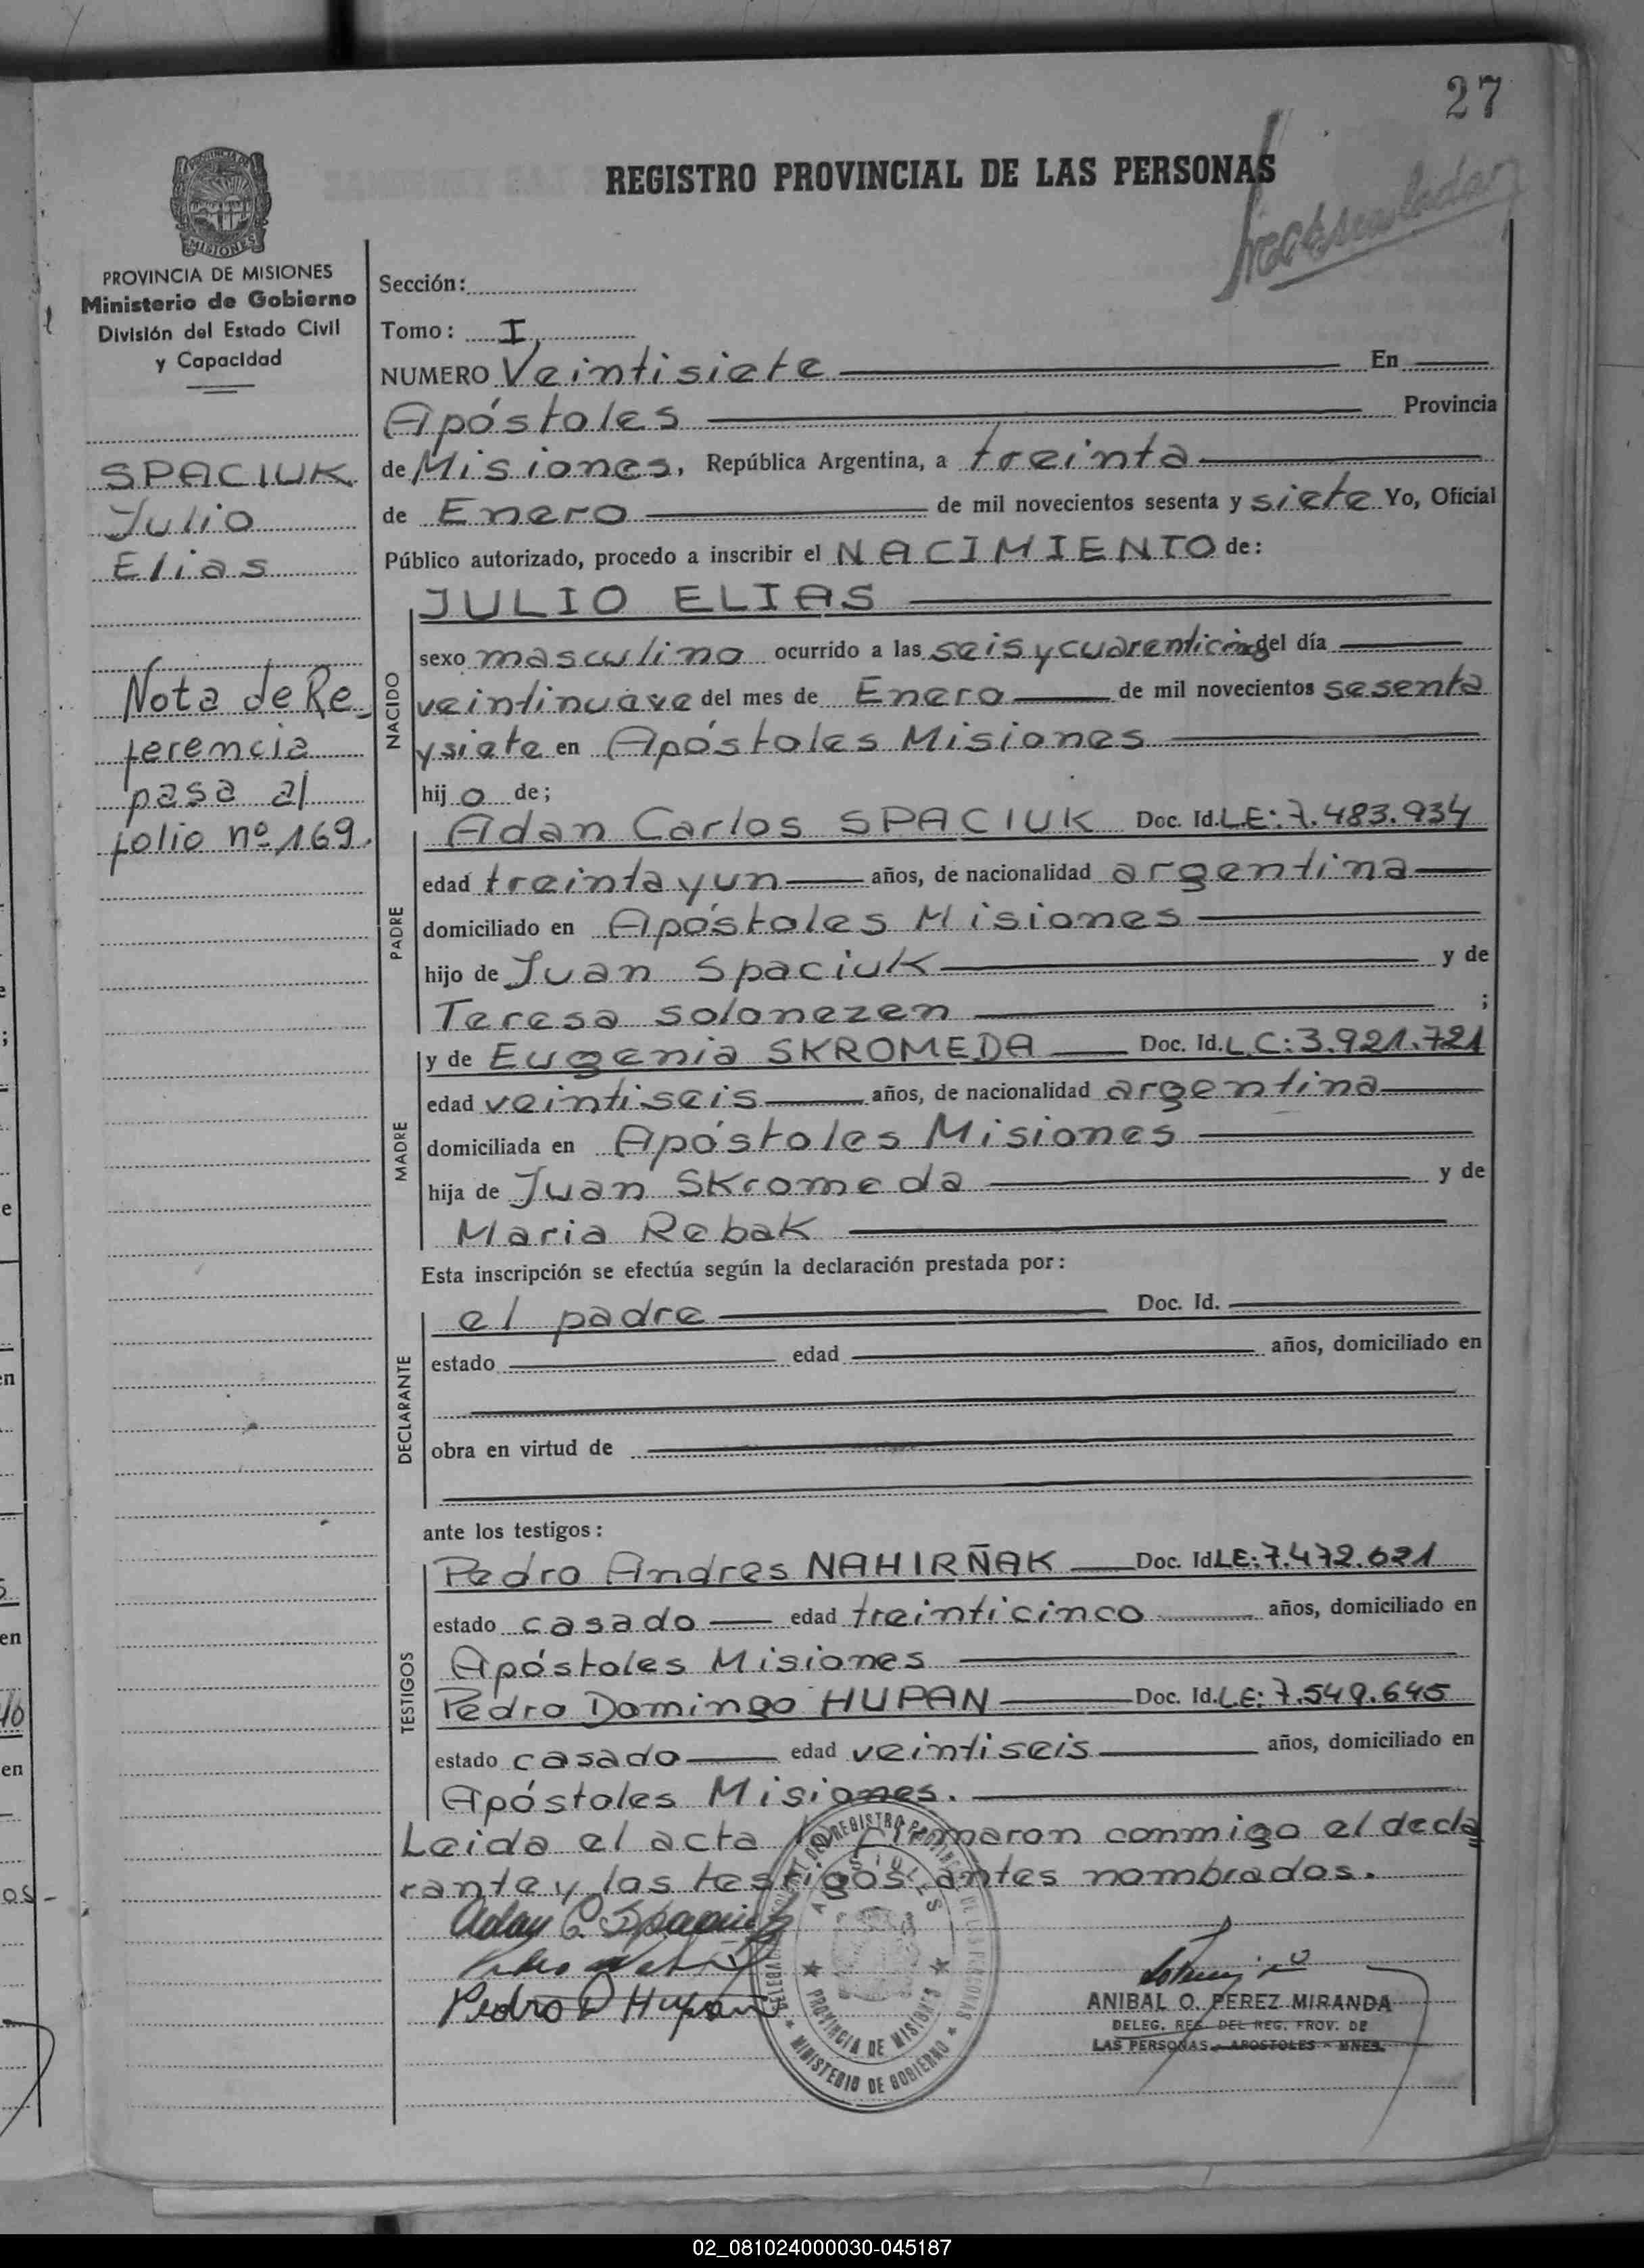 27
REGISTRO PROVINCIAL DE LAS PERSONAS
PROVINCIA DE MISIONES
Ministerio de Gobierno
División del Estado Civil
y Capacidad
SPACIUK
Julio
Elias
Nota de Re_
ferencia
pasa al
folio nº 169.
Sección:
Tomo: I
NUMERO Veintisiete En
Apóstoles Provincia
de Misiones, República Argentina, a treinta
de Enero de mil novecientos sesenta y siete Yo, Oficial
Público autorizado, procedo a inscribir el NACIMIENTO de:
JULIO ELIAS
NACIDO
sexo masculino ocurrido a las seis y cuarenticinco del día
veintinueve del mes de Enero de mil novecientos sesenta
y siete en Apóstoles Misiones
hij o de;
PADRE
Adan Carlos SPACIUK Doc. Id. LE: 7.483.934
edad treinta y un años, de nacionalidad argentina
domiciliado en Apóstoles Misiones
hijo de Juan Spaciuk y de
Teresa Solonezen ;
MADRE
y de Eugenia SKROMEDA Doc. Id. L.C: 3.921.721
edad veintiseis años, de nacionalidad argentina
domiciliada en Apóstoles Misiones
hija de Juan Skromeda y de
Maria Rebak
Esta inscripción se efectúa según la declaración prestada por:
DECLARANTE
el padre Doc. Id.
estado edad años, domiciliado en
obra en virtud de
ante los testigos:
TESTIGOS
Pedro Andres NAHIRÑAK Doc. Id LE: 7.472.621
estado casado edad treinticinco años, domiciliado en
Apóstoles Misiones
Pedro Domingo HUPAN Doc. Id. LE: 7.549.645
estado casado edad veintiseis años, domiciliado en
Apóstoles Misiones.
Leida el acta la firmaron conmigo el decla
rante y los testigos antes nombrados.
Adan C. Spaciuk
Pedro D Hupan
PROVINCIA DE MISIONES
MINISTERIO DE GOBIERNO
ANIBAL O. PEREZ MIRANDA
DELEG. REG. DEL REG. PROV. DE
LAS PERSONAS - APOSTOLES - MNES.
02_081024000030-045187